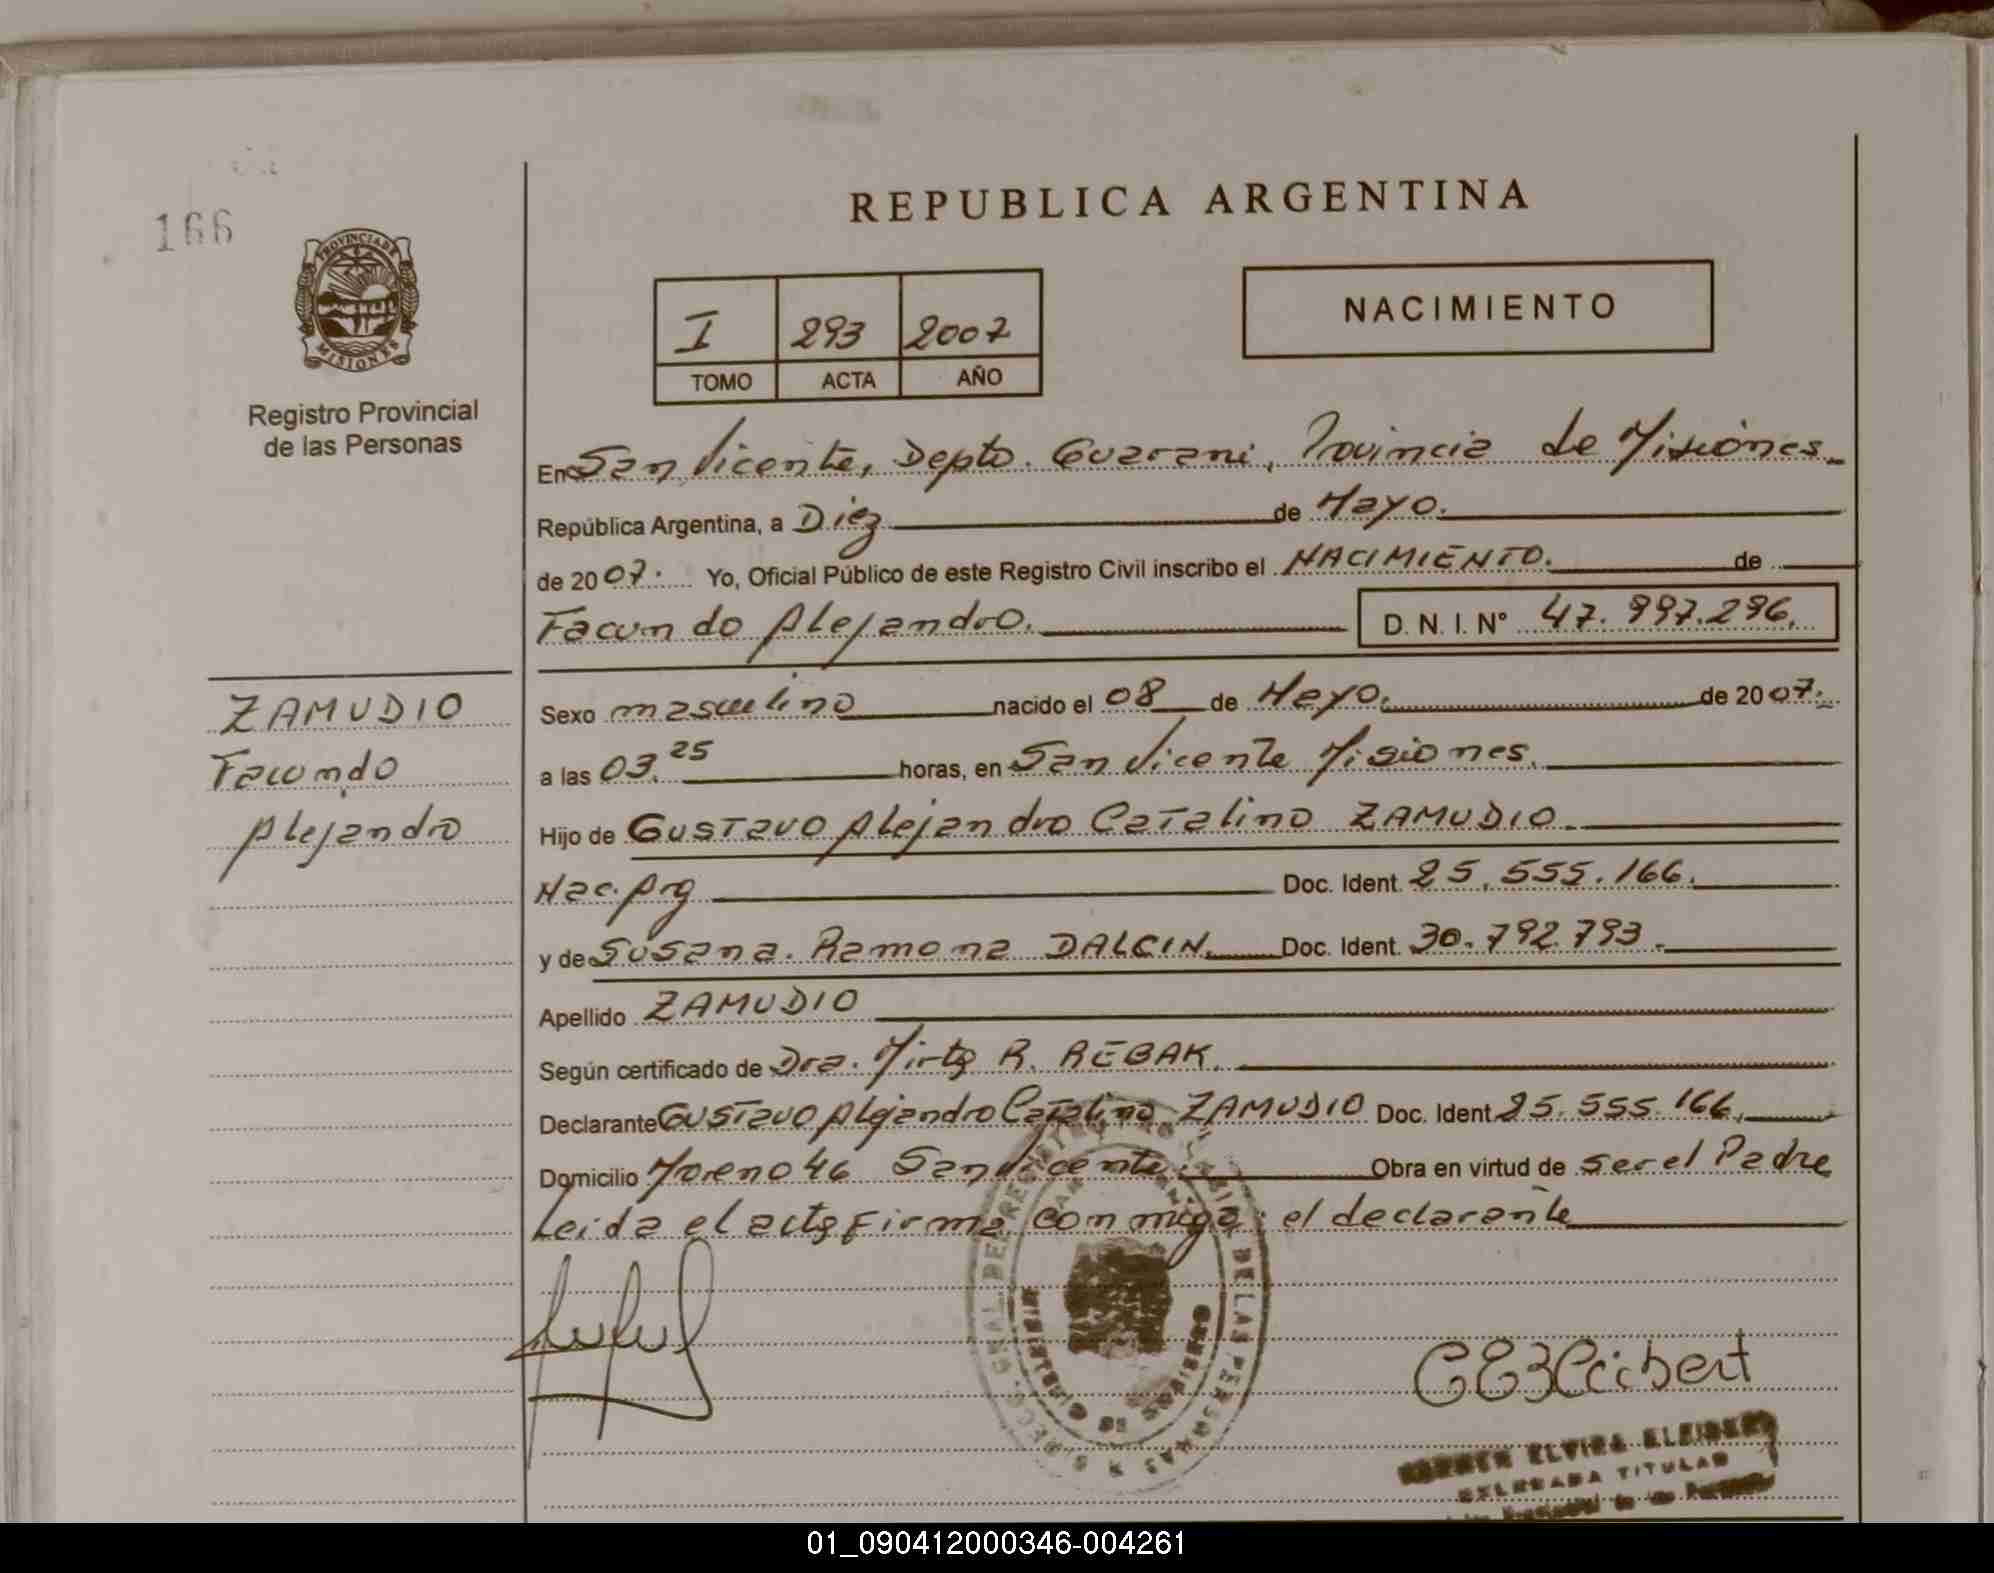 166
PROVINCIA DE
MISIONES
Registro Provincial
de las Personas
REPUBLICA ARGENTINA
I 293 2007
TOMO ACTA AÑO
NACIMIENTO
En San Vicente, Depto. Guarani, Provincia de Misiones.
República Argentina, a Diez de Mayo.
de 2007. Yo, Oficial Público de este Registro Civil inscribo el NACIMIENTO. de
Facundo Alejandro. D. N. I. Nº 47.997.296.
ZAMUDIO
Facundo
Alejandro
Sexo masculino nacido el 08 de Mayo. de 2007.
a las 03.25 horas, en San Vicente Misiones.
Hijo de Gustavo Alejandro Catalino ZAMUDIO.
Nac. Arg Doc. Ident. 25.555.166.
y de Susana. Ramona DALCIN. Doc. Ident. 30.792.793.
Apellido ZAMUDIO
Según certificado de Dra. Mirta R. REBAK.
Declarante Gustavo Alejandro Catalino ZAMUDIO Doc. Ident. 25.555.166.
Domicilio Moreno 46 San Vicente. Obra en virtud de ser el Padre
Leida el acta firma conmigo: el declarante
DE LAS PERSONAS
ELVIRA
TITULAR
01_090412000346-004261